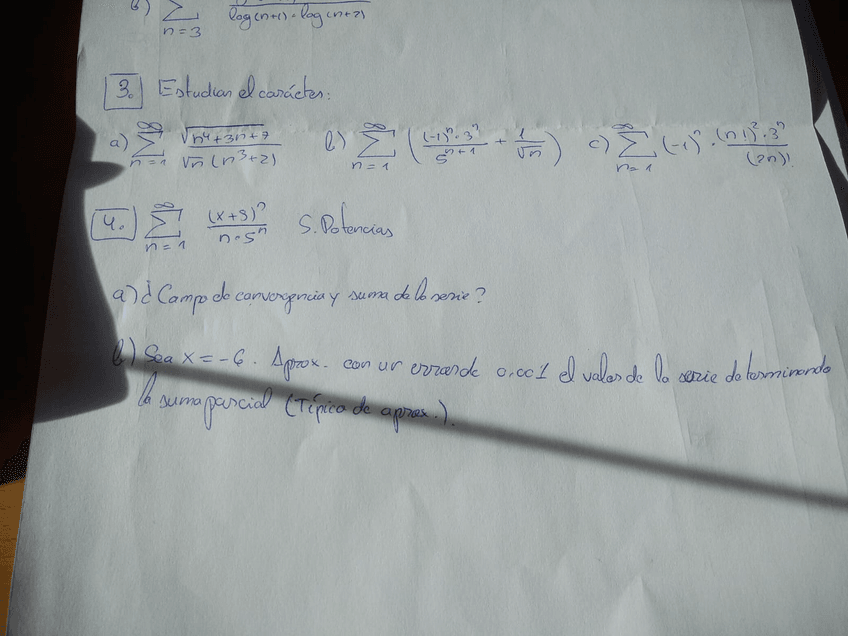 6) ∑ n=3 log(n+1)·log(n+2)
3. Estudiar el carácter:
a) ∑ n=1 ∞ √(n⁴+3n+7) / (√n (n³+2)) b) ∑ n=1 ∞ ( (-1)ⁿ·3ⁿ / 5ⁿ⁺¹ + 1/√n ) c) ∑ n=1 ∞ (-1)ⁿ · (n!)²·3ⁿ / (2n)!
4. ∑ n=1 ∞ (x+5)ⁿ / (n·5ⁿ) S. Potencias
a) ¿Campo de convergencia y suma de la serie?
b) Sea x = -6. Aprox. con un error de 0.001 el valor de la serie determinando
la suma parcial (Típico de aprox.).